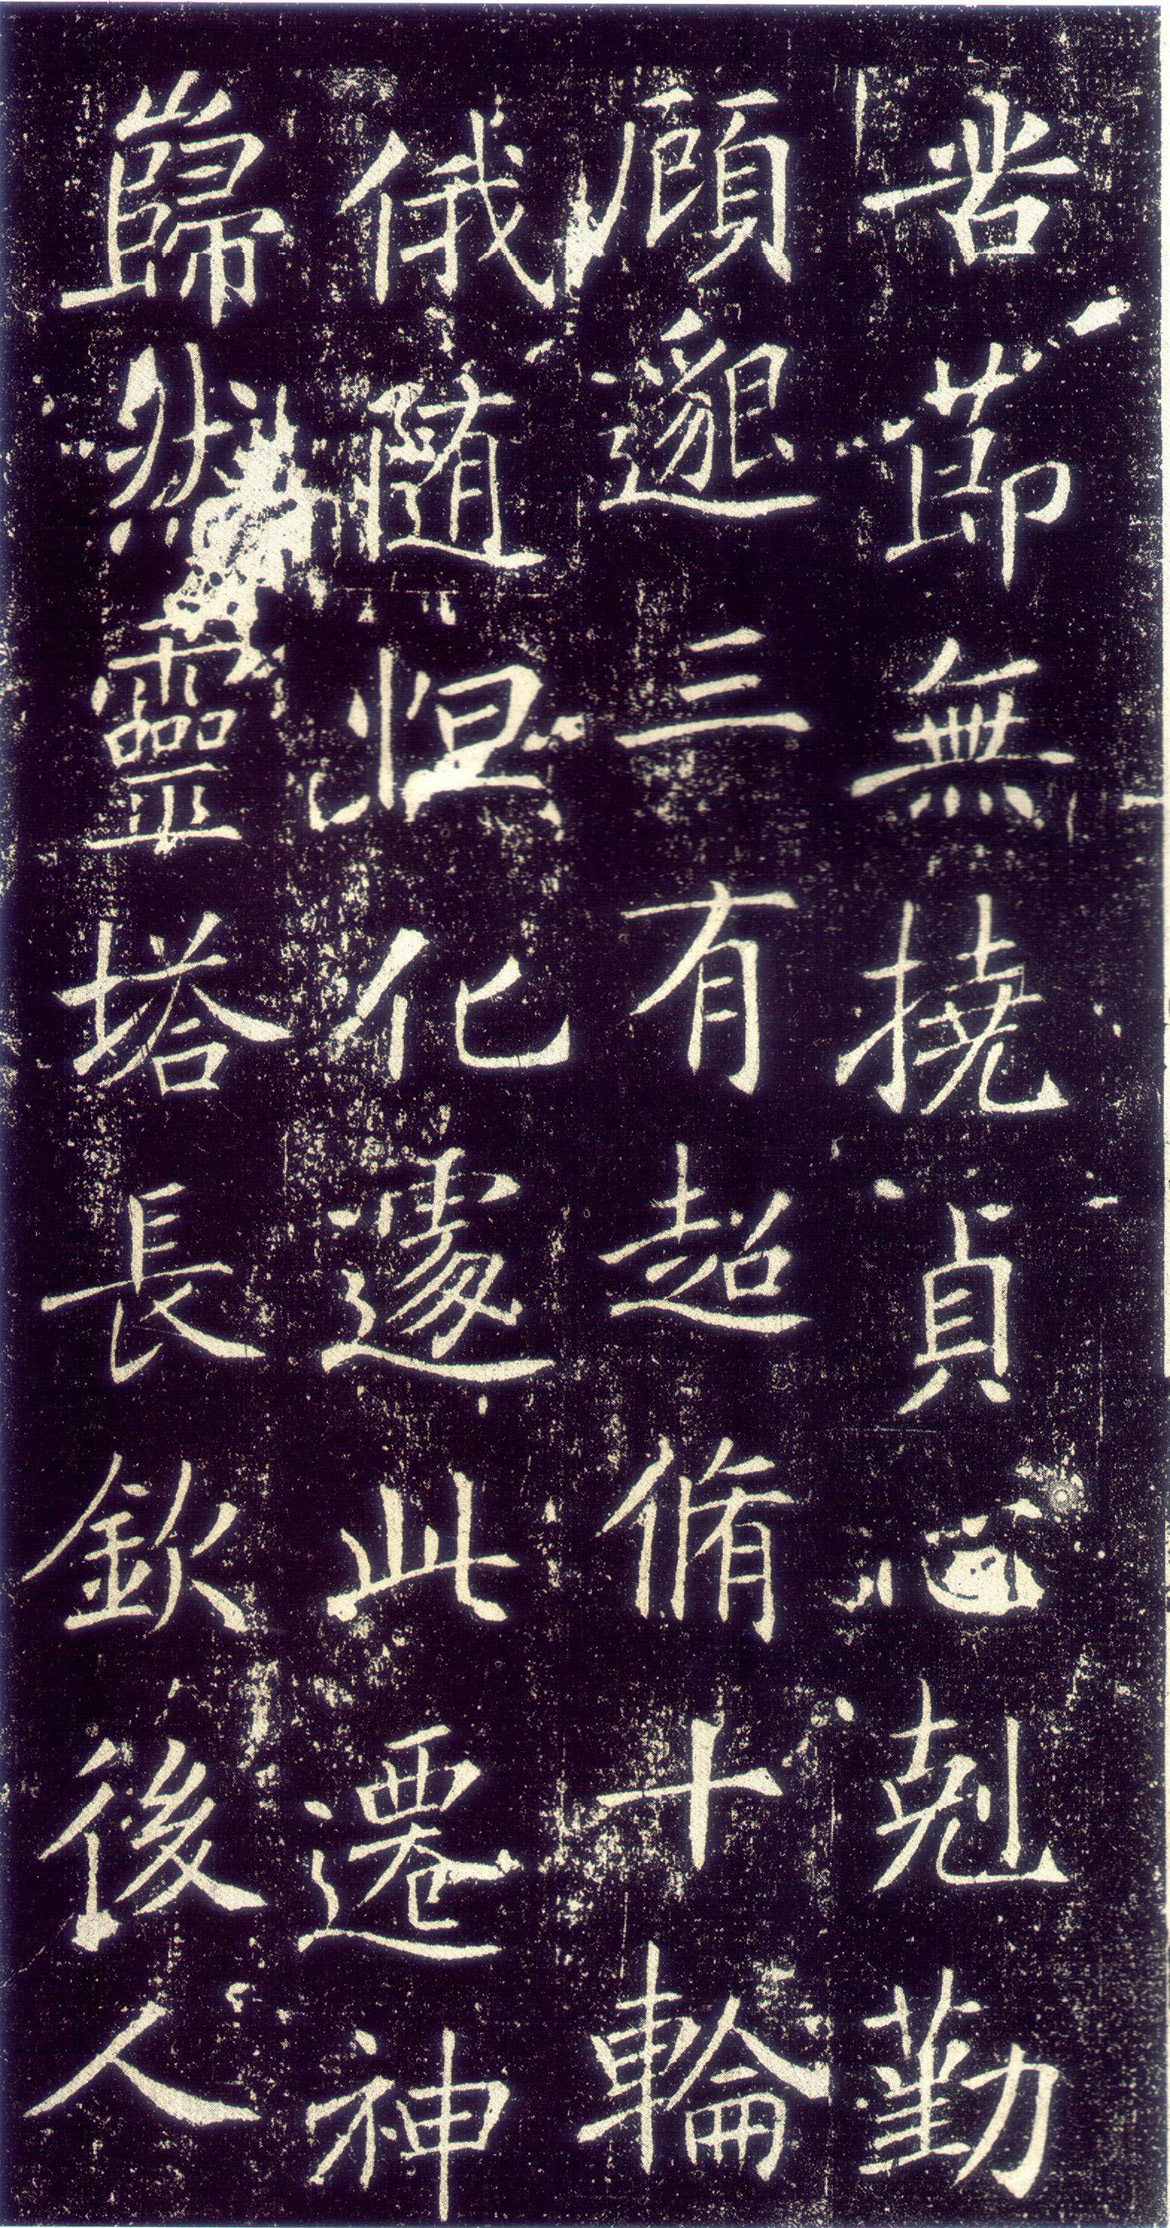 苦節無撓貞心剋勤
顧邈三有超脩十輪
俄随恒化遽此遷神
巋然靈塔長欽後人